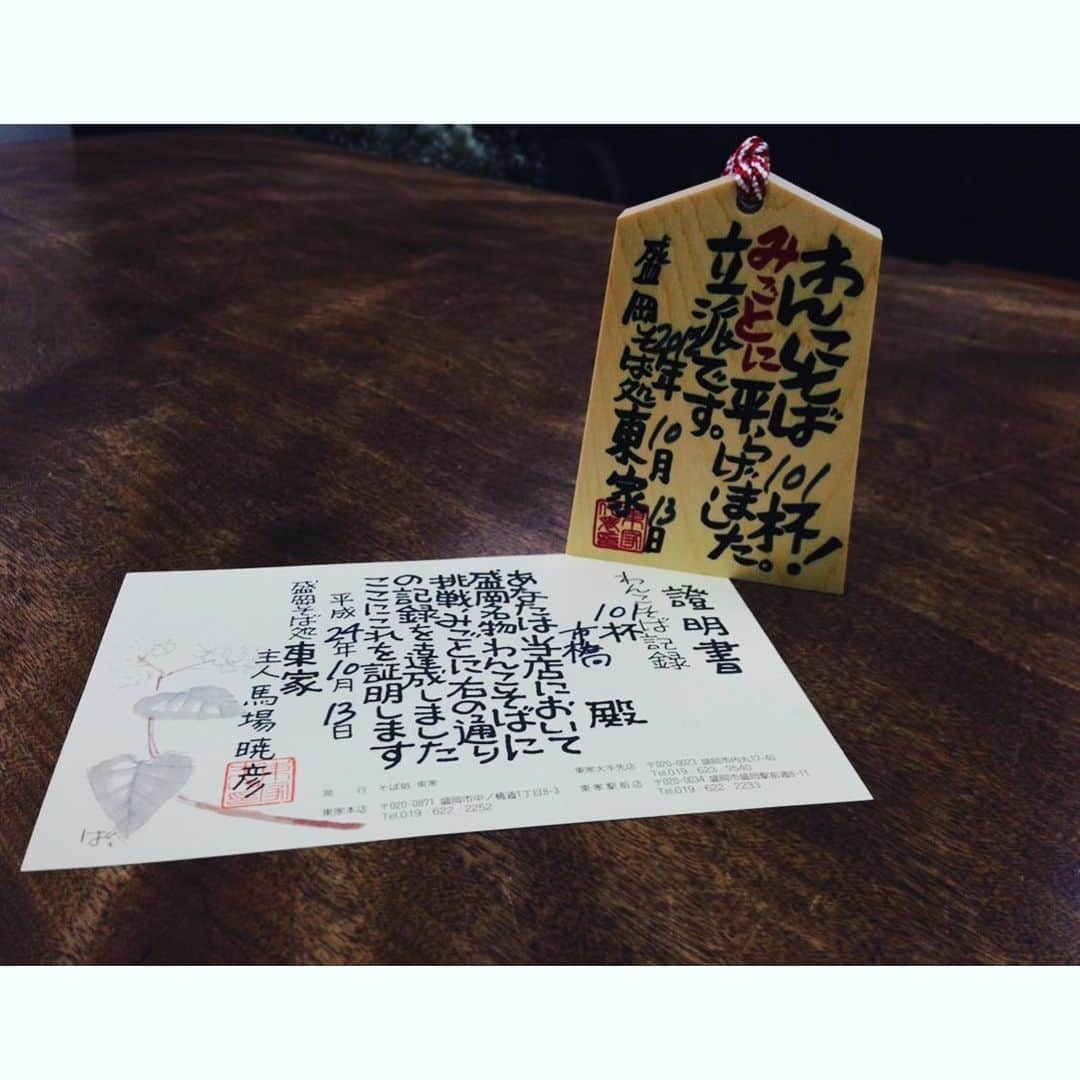 わんこそば101杯!
みごとに平らげました。
立派です。
2012年10月13日
盛岡そば処東家
證明書
わんこそば記録
101杯
高橋 殿
あなたは当店において
盛岡名物わんこそばに
挑戦みごとに右の通り
の記録を達成しました
ここにこれを証明します
平成24年10月13日
盛岡そば処東家
主人馬場暁彦
発行 そば処 東家
東家本店 〒020-0871 盛岡市中ノ橋通1丁目8-3
Tel.019・622・2252
東家大手先店 〒020-0023 盛岡市内丸17-40
Tel.019・623・7540
東家駅前店 〒020-0034 盛岡市盛岡駅前通8-11
Tel.019・622・2233